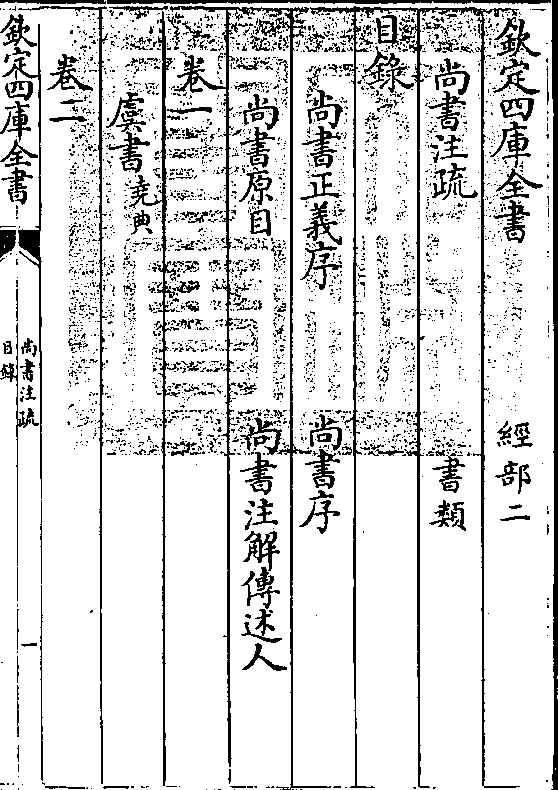 欽定四庫全書 經部二
尚書注疏 書類
目錄
尚書正義序 尚書序
尚書原目 尚書注解傳述人
卷一
虞書堯典
卷二
欽定四庫全書 尚書注疏 目錄 一